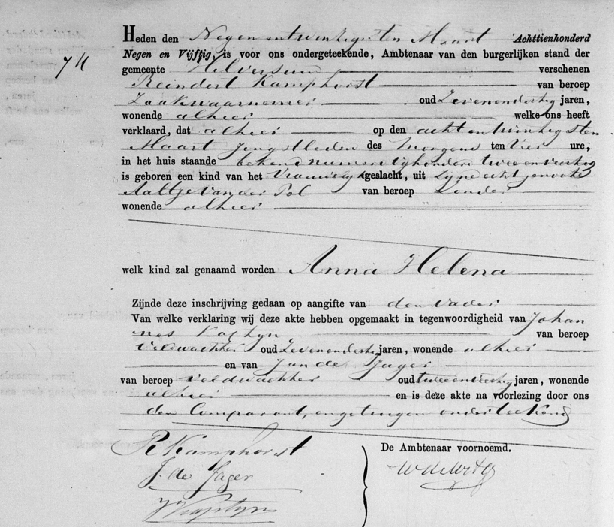 Heden den Negen en twintigsten Maart Achttienhonderd
Negen en Vijftig, is voor ons ondergeteekende, Ambtenaar van den burgerlijken stand der
gemeente Hilversum verschenen
Reindert Kamphorst van beroep
Zaakwaarnemer oud Zevenendertig jaren,
wonende alhier welke ons heeft
verklaard, dat alhier op den acht en twintigsten
Maart Jongstleden des morgens ten Vier ure,
in het huis staande
is geboren een kind van het Vrouwelijk geslacht, uit zijne echtgenoote
Aaltje van der Pol van beroep Zonder
wonende alhier
74
welk kind zal genaamd worden Anna Helena
Zijnde deze inschrijving gedaan op aangifte van den vader
Van welke verklaring wij deze akte hebben opgemaakt in tegenwoordigheid van Johan
nes van beroep
Veldwachter oud Zevenendertig jaren, wonende alhier
en van Jan de Jager
van beroep Veldwachter oud jaren, wonende
alhier en is deze akte na voorlezing door ons
den Comparant, en getuigen onderteekend
R Kamphorst
J. de Jager
De Ambtenaar voornoemd.